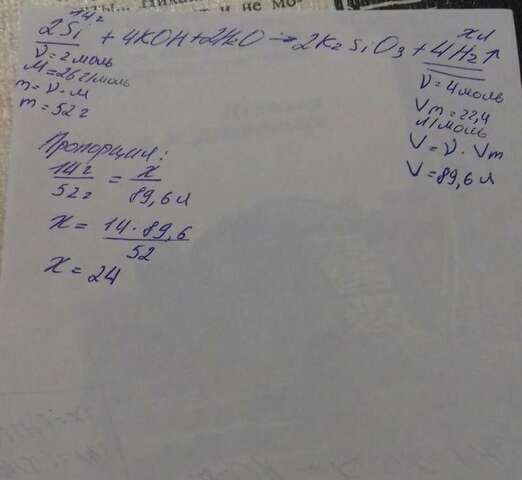 ты... Никак
ет и не мо-
14г хл
2Si + 4KOH+2H2O → 2K2SiO3 + 4H2↑
ν = 2 моль
M = 26 г/моль
m = ν · M
m = 52 г
ν = 4 моль
Vm = 22,4
л/моль
V = ν · Vm
V = 89,6 л
Пропорция:
14г/52г = x/89,6л
x = 14·89,6/52
x = 24